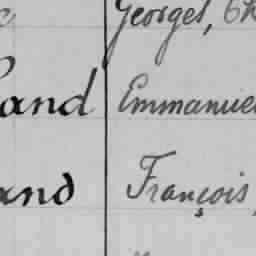 Georges,
and Emmanuel
and François,